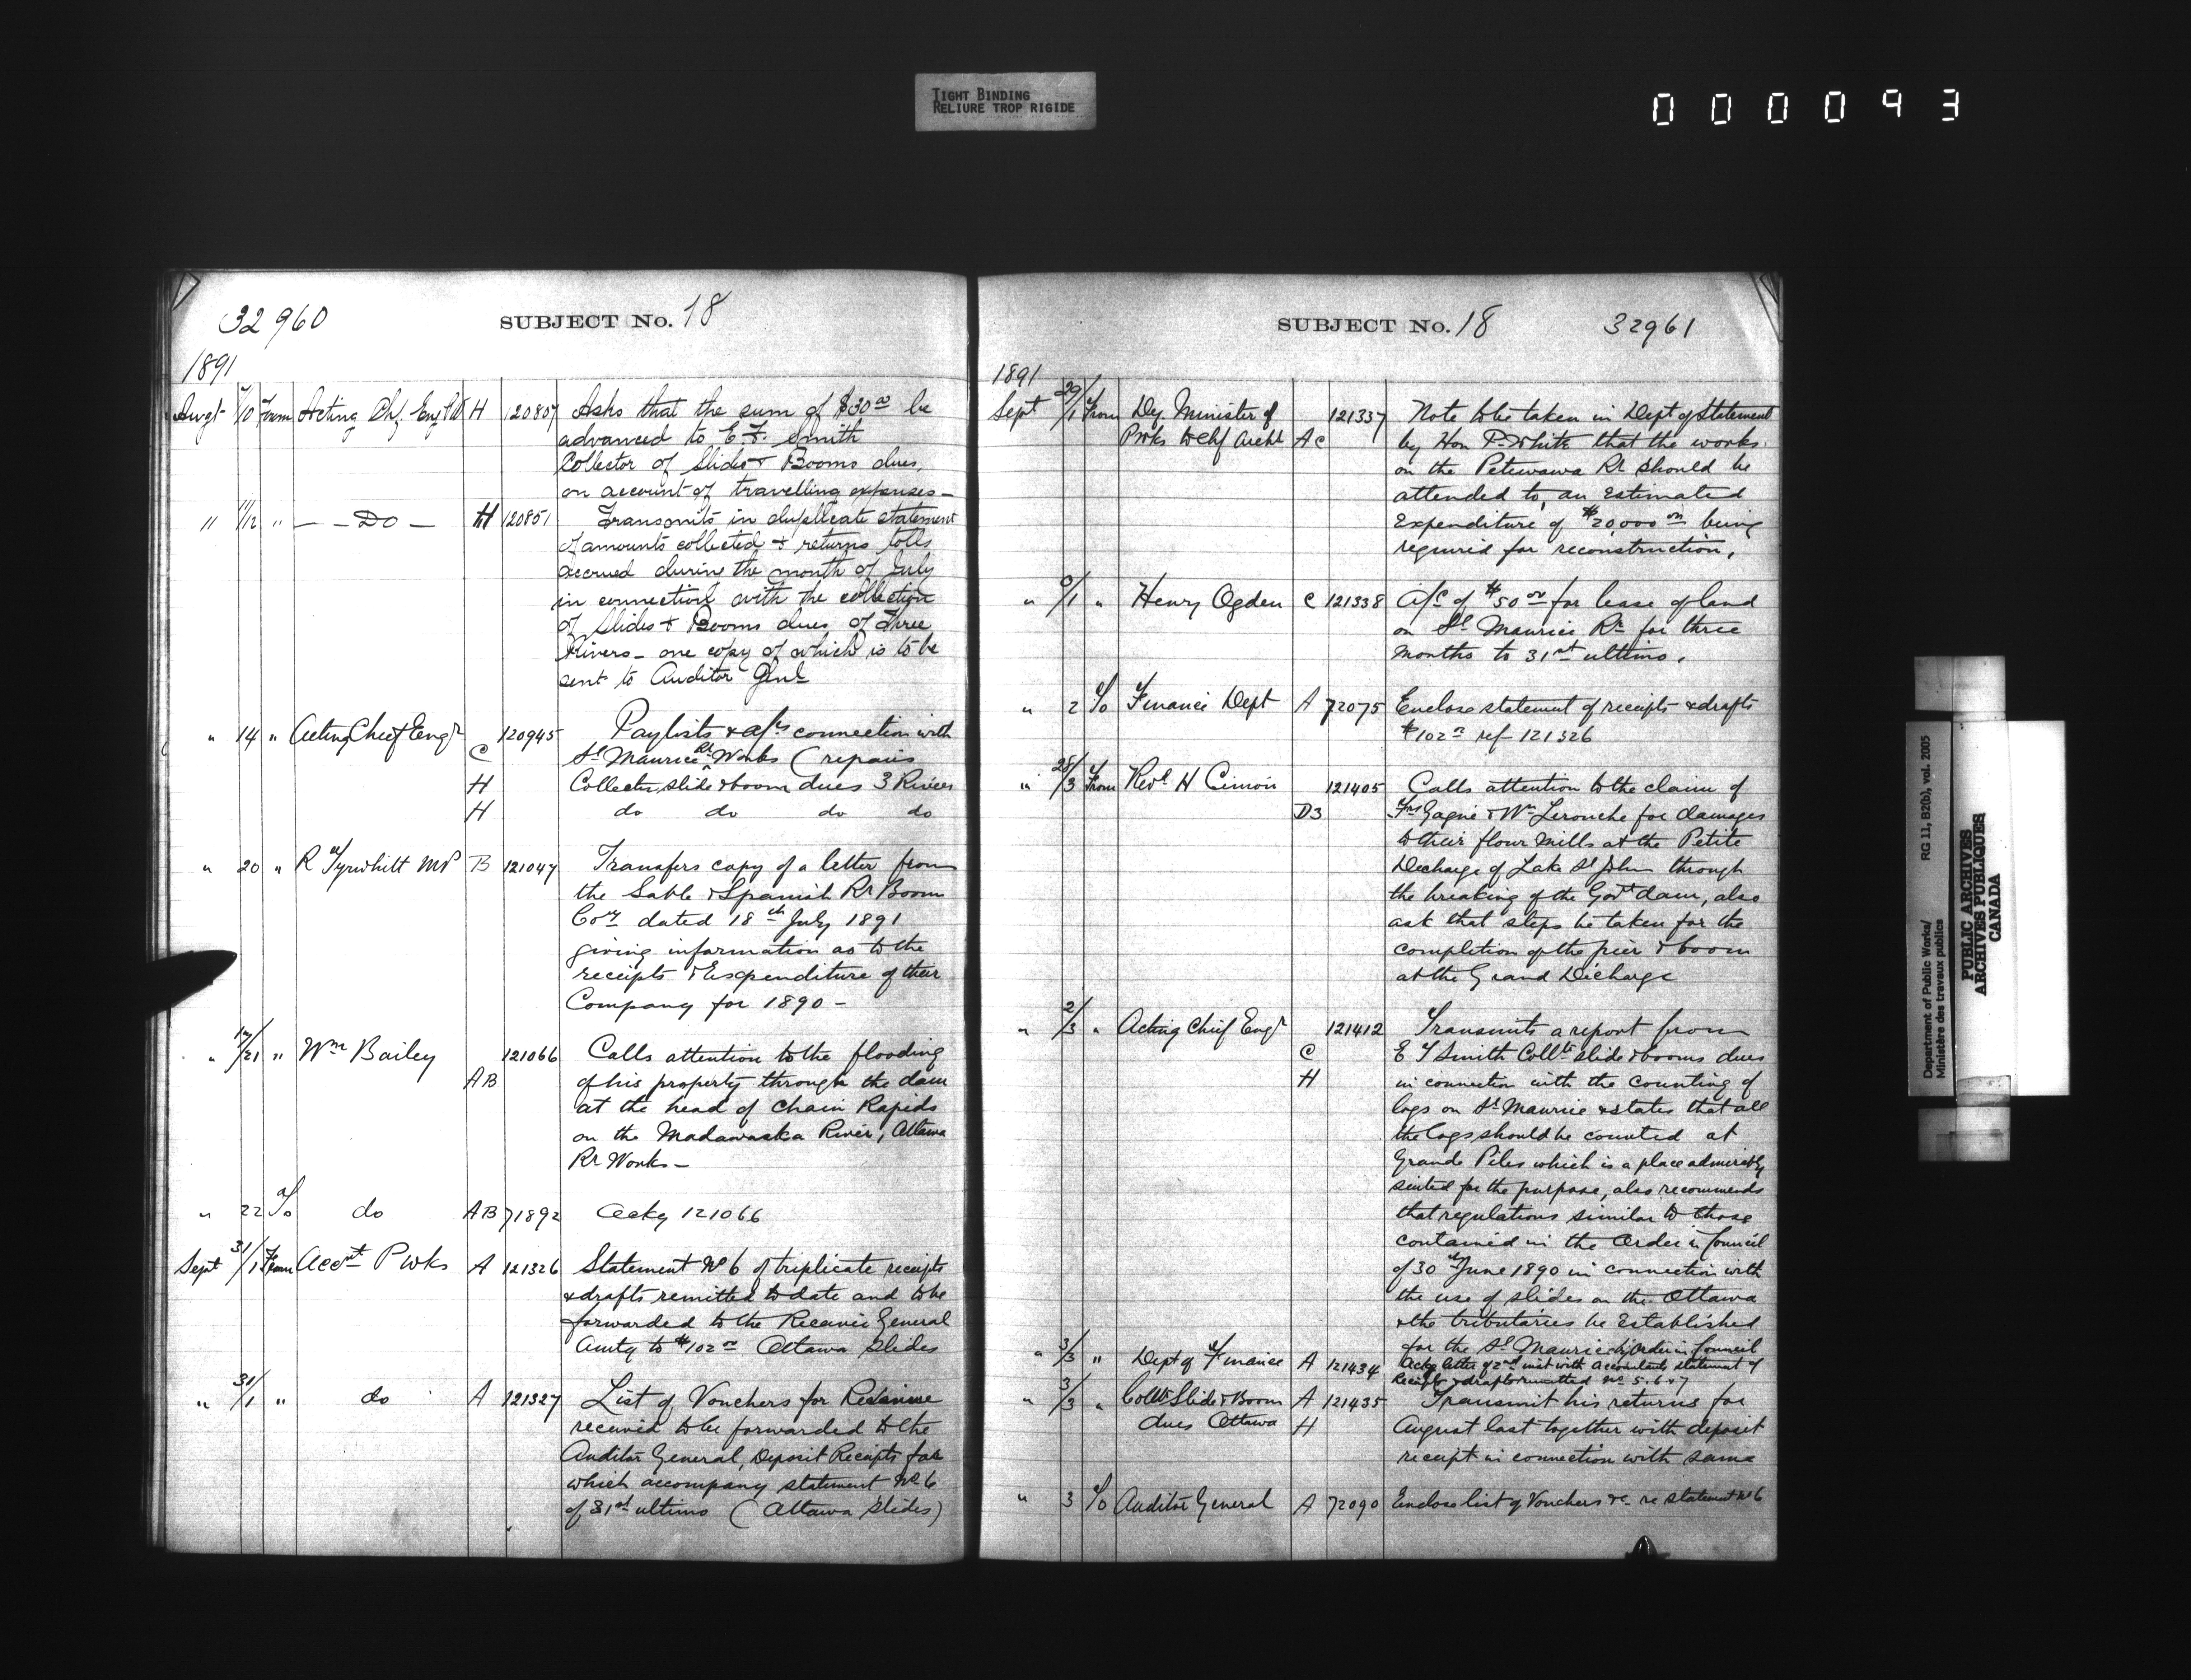 TIGHT BINDING
RELIURE TROP RIGIDE
000093
32960
SUBJECT No. 18
1891
Augt 7/10 From Acting Chf. Eng H 120807 Asks that the sum of $30 00 be
advanced to E. F. Smith
Collector of Slides & Booms dues,
on account of travelling expenses —
" 11/12 " — — Do — H 120851 Transmits in duplicate statement
of amounts collected & returns tolls
accrued during the month of July
in connection with the collection
of Slides & Booms dues of Three
Rivers — one copy of which is to be
sent to Auditor Genl
" 14 " Acting Chief Engr 120945 Paylists & a/cs connection with
C St Maurice Rr Works (repairs
H Collector slide & boom dues 3 Rivers
H do do do do
" 20 " R Tyrwhitt MP B 121047 Transfers copy of a letter from
the Sable & Spanish Rr Boom
Coy dated 18th July 1891
giving information as to the
receipts & Expenditure of their
Company for 1890 —
" 17/21 " Wm Bailey 121066 Calls attention to the flooding
AB of his property through the dam
at the head of Chain Rapids
on the Madawaska River, Ottawa
Rr Works —
" 22 To do AB 71892 Ackg 121066
Sept 31/1 From Accnt P Wks A 121326 Statement No 6 of triplicate receipts
& drafts remitted to date and to be
forwarded to the Receiver General
Amtg to $102 00 Ottawa Slides
" 31/1 " do A 121327 List of Vouchers for Revenue
received to be forwarded to the
Auditor General, Deposit Receipts for
which accompany statement No 6
of 31st ultimo (Ottawa Slides)
SUBJECT No. 18
32961
1891
Sept 29/1 From Dy. Minister of 121337 Note to be taken in Dept of Statement
P Wks to Chf Archt AC by Hon P. White that the works
on the Petewawa Rr should be
attended to, an estimated
Expenditure of $20,000 00 being
required for reconstruction.
" 0/1 " Henry Ogden C 121338 A/c of $50 00 for lease of land
on St Maurice Rr for three
months to 31st ultimo.
" 2 To Finance Dept A 72075 Enclose statement of receipts & drafts
$102 00 ref 121326
" 28/3 From Revd H Cimon 121405 Calls attention to the claim of
D3 Frs Gagné & Wm Lerouche for damages
to their flour mills at the Petite
Decharge of Lake St John through
the breaking of the Govt dam, also
ask that steps be taken for the
completion of the pier & boom
at the Grand Décharge
" 2/3 " Acting Chief Engr 121412 Transmits a report from
C E T Smith Colltr slide & booms dues
H in connection with the counting of
logs on St Maurice & states that all
the logs should be counted at
Grande Piles which is a place admirably
suited for the purpose, also recommends
that regulations similar to those
contained in the Order in Council
of 30th June 1890 in connection with
the use of slides on the Ottawa
& the tributaries be established
for the St Maurice by Order in Council
" 3/3 " Dept of Finance A 121434 Ackg letter of 2nd inst with accountants statement of
Receipts & drafts remitted No 5. 6 & 7
" 3/3 " Colltr Slide & Boom A 121435 Transmit his returns for
dues Ottawa H August last together with deposit
receipt in connection with same
" 3 To Auditor General A 72090 Enclose list of Vouchers &c re statement No 6
Department of Public Works/ RG 11, B2(b), vol. 2005
Ministère des travaux publics
PUBLIC ARCHIVES
ARCHIVES PUBLIQUES
CANADA